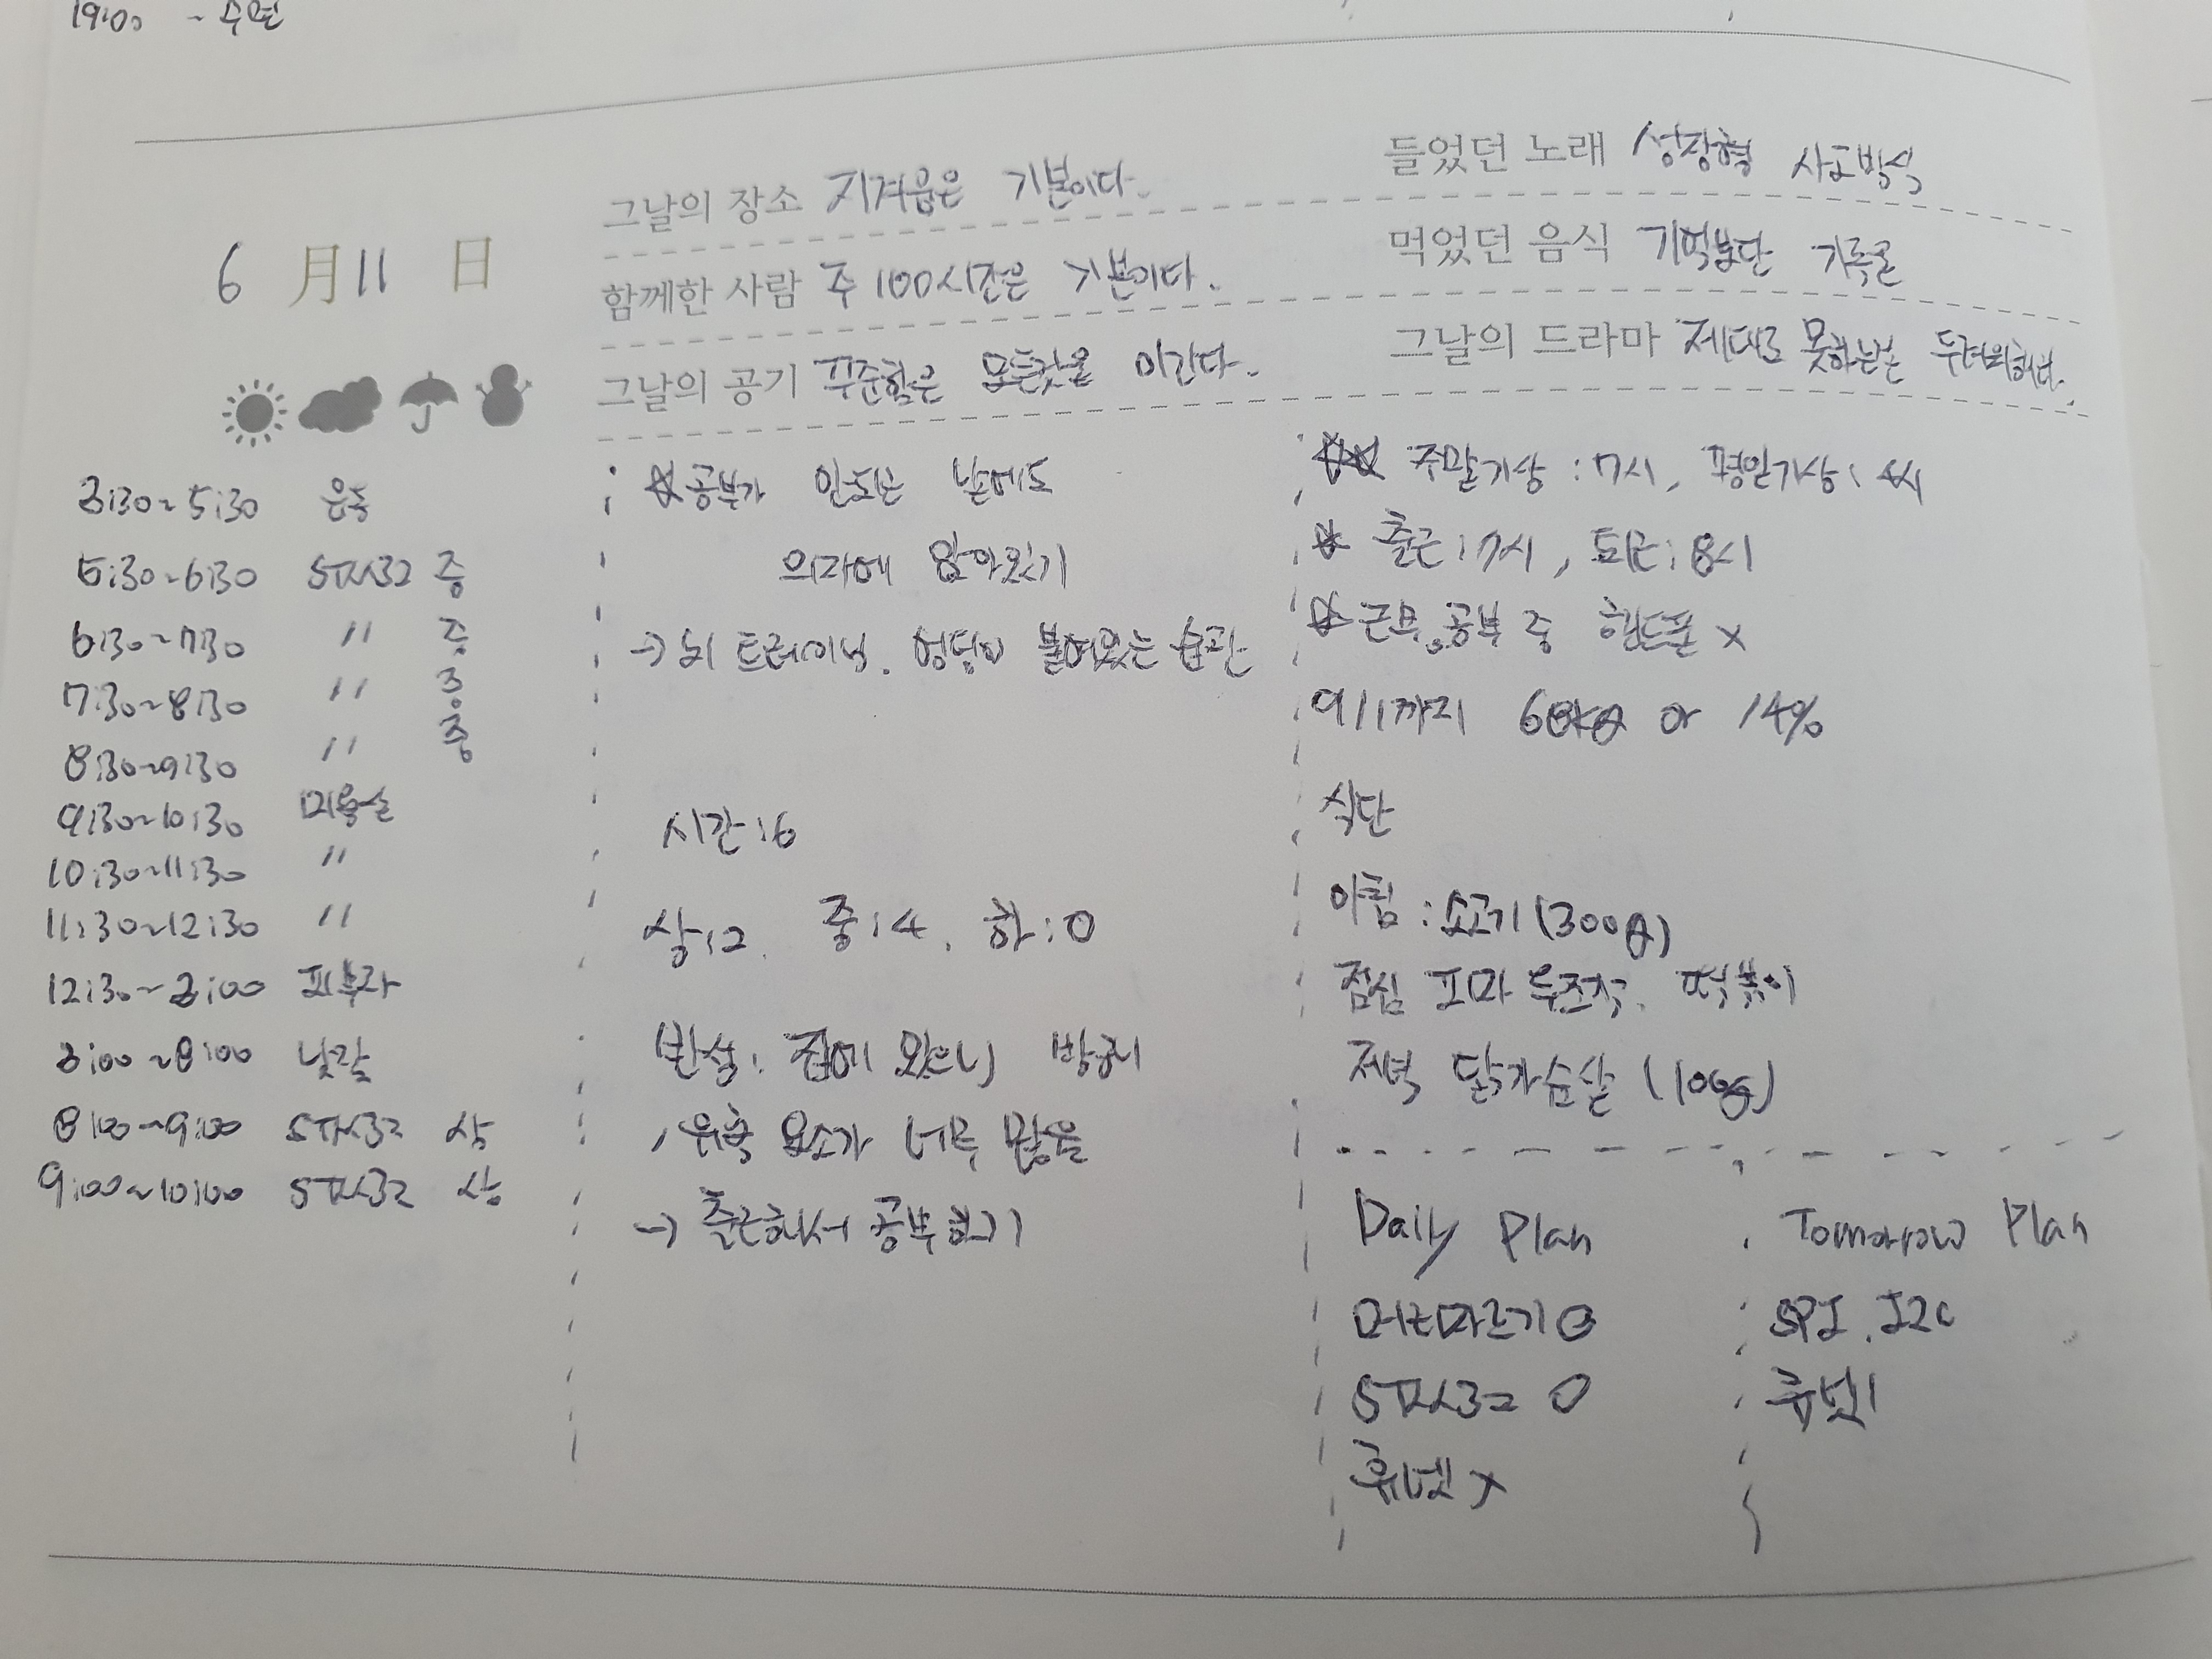 19:00 ~ 수면
그날의 장소 지겨움은 기본이다.
함께한 사람 주 100시간은 기본이다.
그날의 공기 꾸준함은 모든것을 이긴다.
들었던 노래 성장형 사고방식
먹었던 음식 기억보단 기록을
그날의 드라마 제대로 못하는걸 두려워해라.
6 月 11 日
3:30~5:30 운동
5:30~6:30 STM32 중
6:30~7:30 〃 중
7:30~8:30 〃 중
8:30~9:30 〃 중
9:30~10:30 미용실
10:30~11:30 〃
11:30~12:30 〃
12:30~3:00 피부과
3:00~8:00 낮잠
8:00~9:00 STM32 상
9:00~10:00 STM32 상
☆공부가 안되는 날에도
의자에 앉아있기
→ 뇌 트레이닝. 엉덩이 붙여있는 습관
시간:6
상:2. 중:4. 하:0
반성: 집에 있으니 방해
유혹 요소가 너무 많음
→ 출근해서 공부하기
☆☆ 주말기상:7시, 평일기상:4시
☆ 출근:7시, 퇴근:8시
☆ 근무,공부 중 핸드폰 x
9/1까지 68kg or 14%
식단
아침:소고기(300g)
점심 피마 두조각. 떡볶이
저녁 닭가슴살 (100g)
Daily Plan
STM32 O
Tomorrow Plan
SPI. I2C